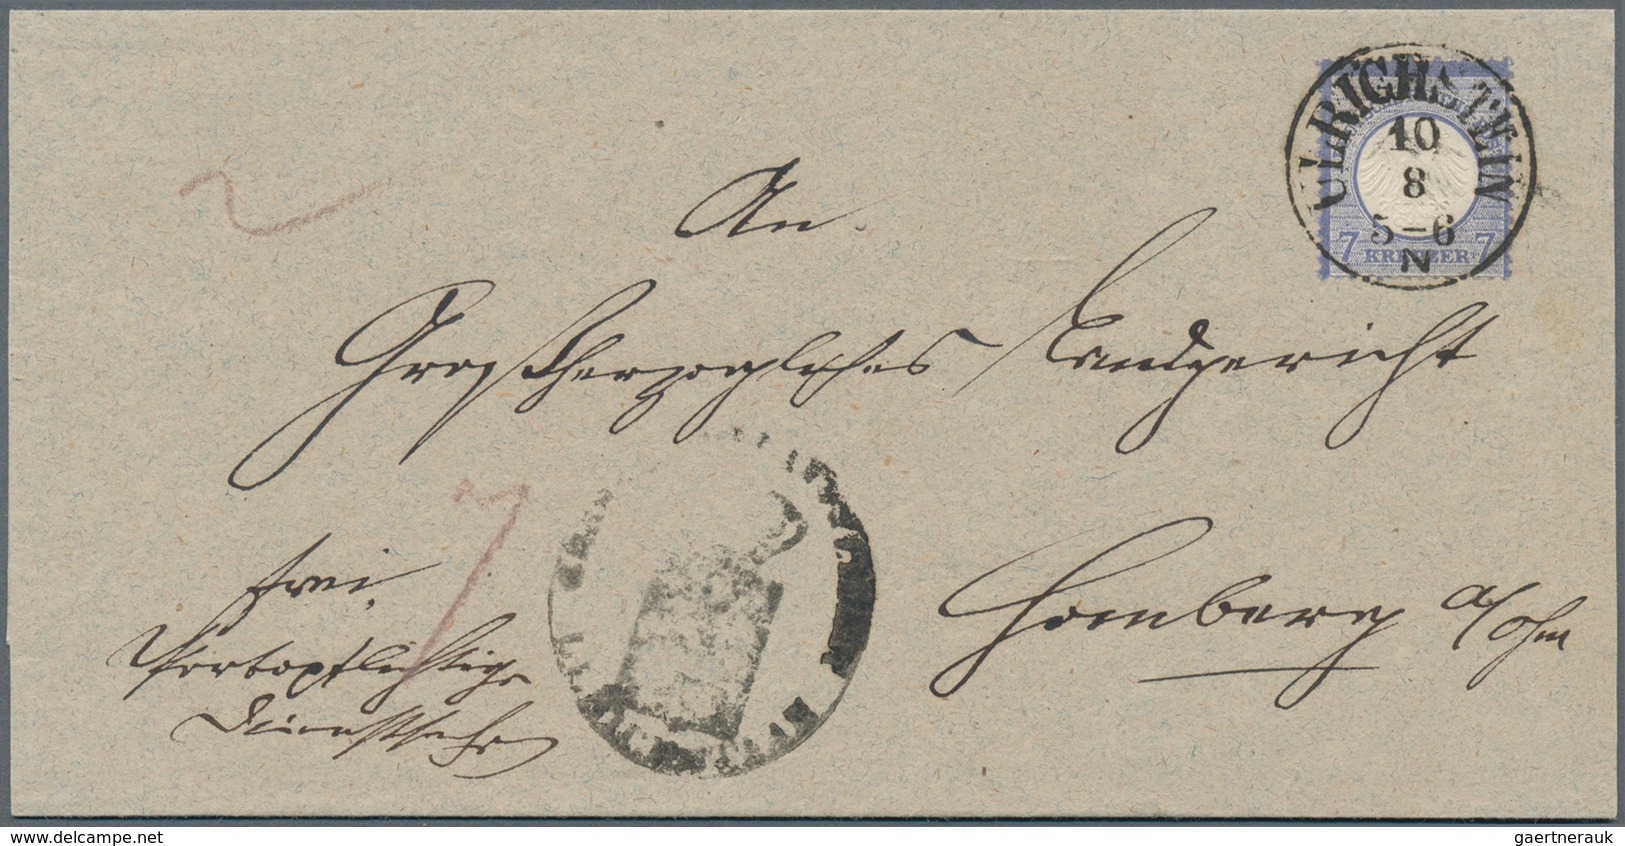 ULRICHSTEIN
10
8
5-6
N
7 KREUZER 7
An
Großherzogliches Landgericht
Homberg a/Ohm
frei
Portopflichtige
Dienstsache
7
www.delcampe.net
gaertnerauk